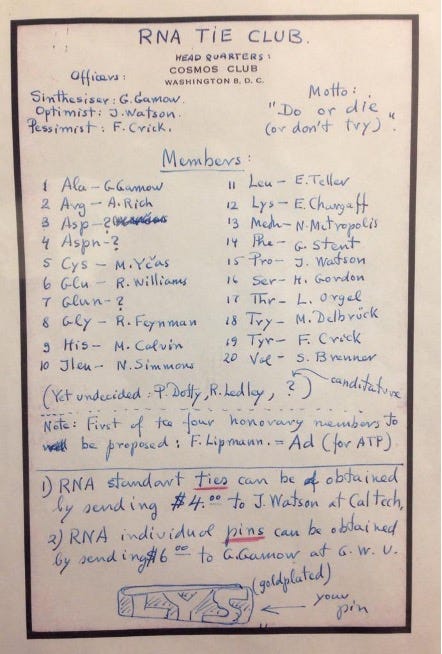 RNA TIE CLUB.
HEAD QUARTERS:
COSMOS CLUB
WASHINGTON 8, D. C.
Officers:
Sinthesiser: G. Gamow.
Optimist: J. Watson.
Pessimist: F. Crick.
Motto:
"Do or die
(or don't try)".
Members:
1 Ala – G. Gamow
2 Arg – A. Rich
3 Asp – ?
4 Aspn – ?
5 Cys – M. Yčas
6 Glu – R. Williams
7 Glun – ?
8 Gly – R. Feynman
9 His – M. Calvin
10 Ileu – N. Simmons
11 Leu – E. Teller
12 Lys – E. Chargaff
13 Meth – N. Metropolis
14 Phe – G. Stent
15 Pro – J. Watson
16 Ser – H. Gordon
17 Thr – L. Orgel
18 Try – M. Delbrück
19 Tyr – F. Crick
20 Val – S. Brenner
canditature
(Yet undecided: P. Dotty, R. Ledley, ?)
Note: First of the four honorary members to
be proposed: F. Lipmann. = Ad (for ATP)
1) RNA standart ties can be obtained
by sending $4.00 to J. Watson at Caltech,
2) RNA individual pins can be obtained
by sending $6 00 to G. Gamow at G. W. U.
(goldplated)
your
pin